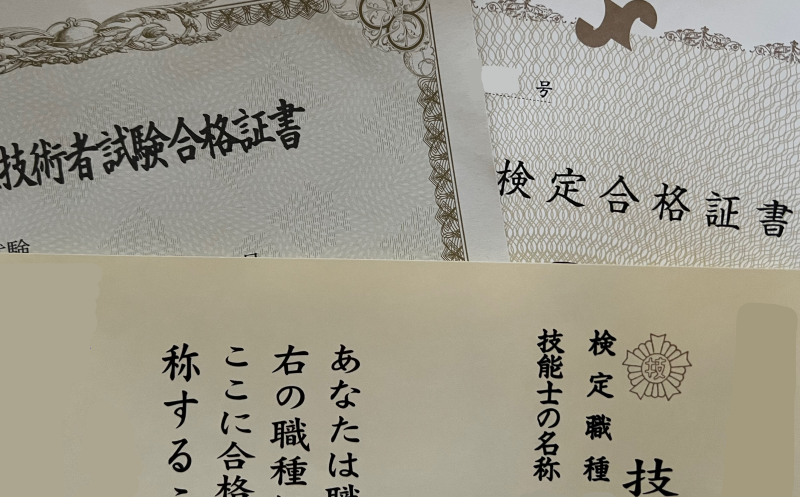 技術者試験合格証書
験
号
検定合格証書
技
技
検定職種
技能士の名称
あなたは職
右の職種
ここに合格
称する